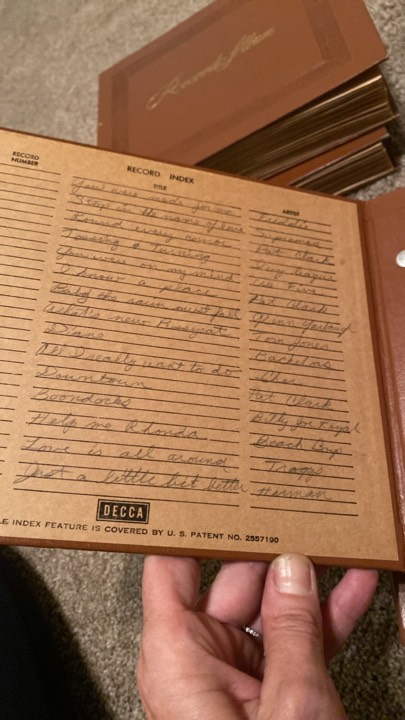 Record Files
RECORD NUMBER
RECORD INDEX
TITLE
ARTIST
You were made for me Freddie
Stop in the name of love Supremes
Round every corner Pet Clark
Tossing & Turning Ivy League
You were on my mind We Five
I know a place Pet Clark
Baby the rain must fall Glenn Yarbough
What's new Pussycat Tom Jones
Diane Bachelors
All I really want to do Cher
Downtown Pet Clark
Boondocks Billy Joe Royal
Help me Rhonda Beach Boys
Love is all around Troggs
Just a little bit better Herman
DECCA
E INDEX FEATURE IS COVERED BY U. S. PATENT NO. 2557190